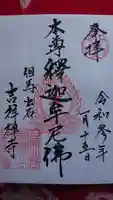 奉拝
令和三年
一月十五日
本尊釋迦牟尼佛
但馬出石
吉祥禅寺